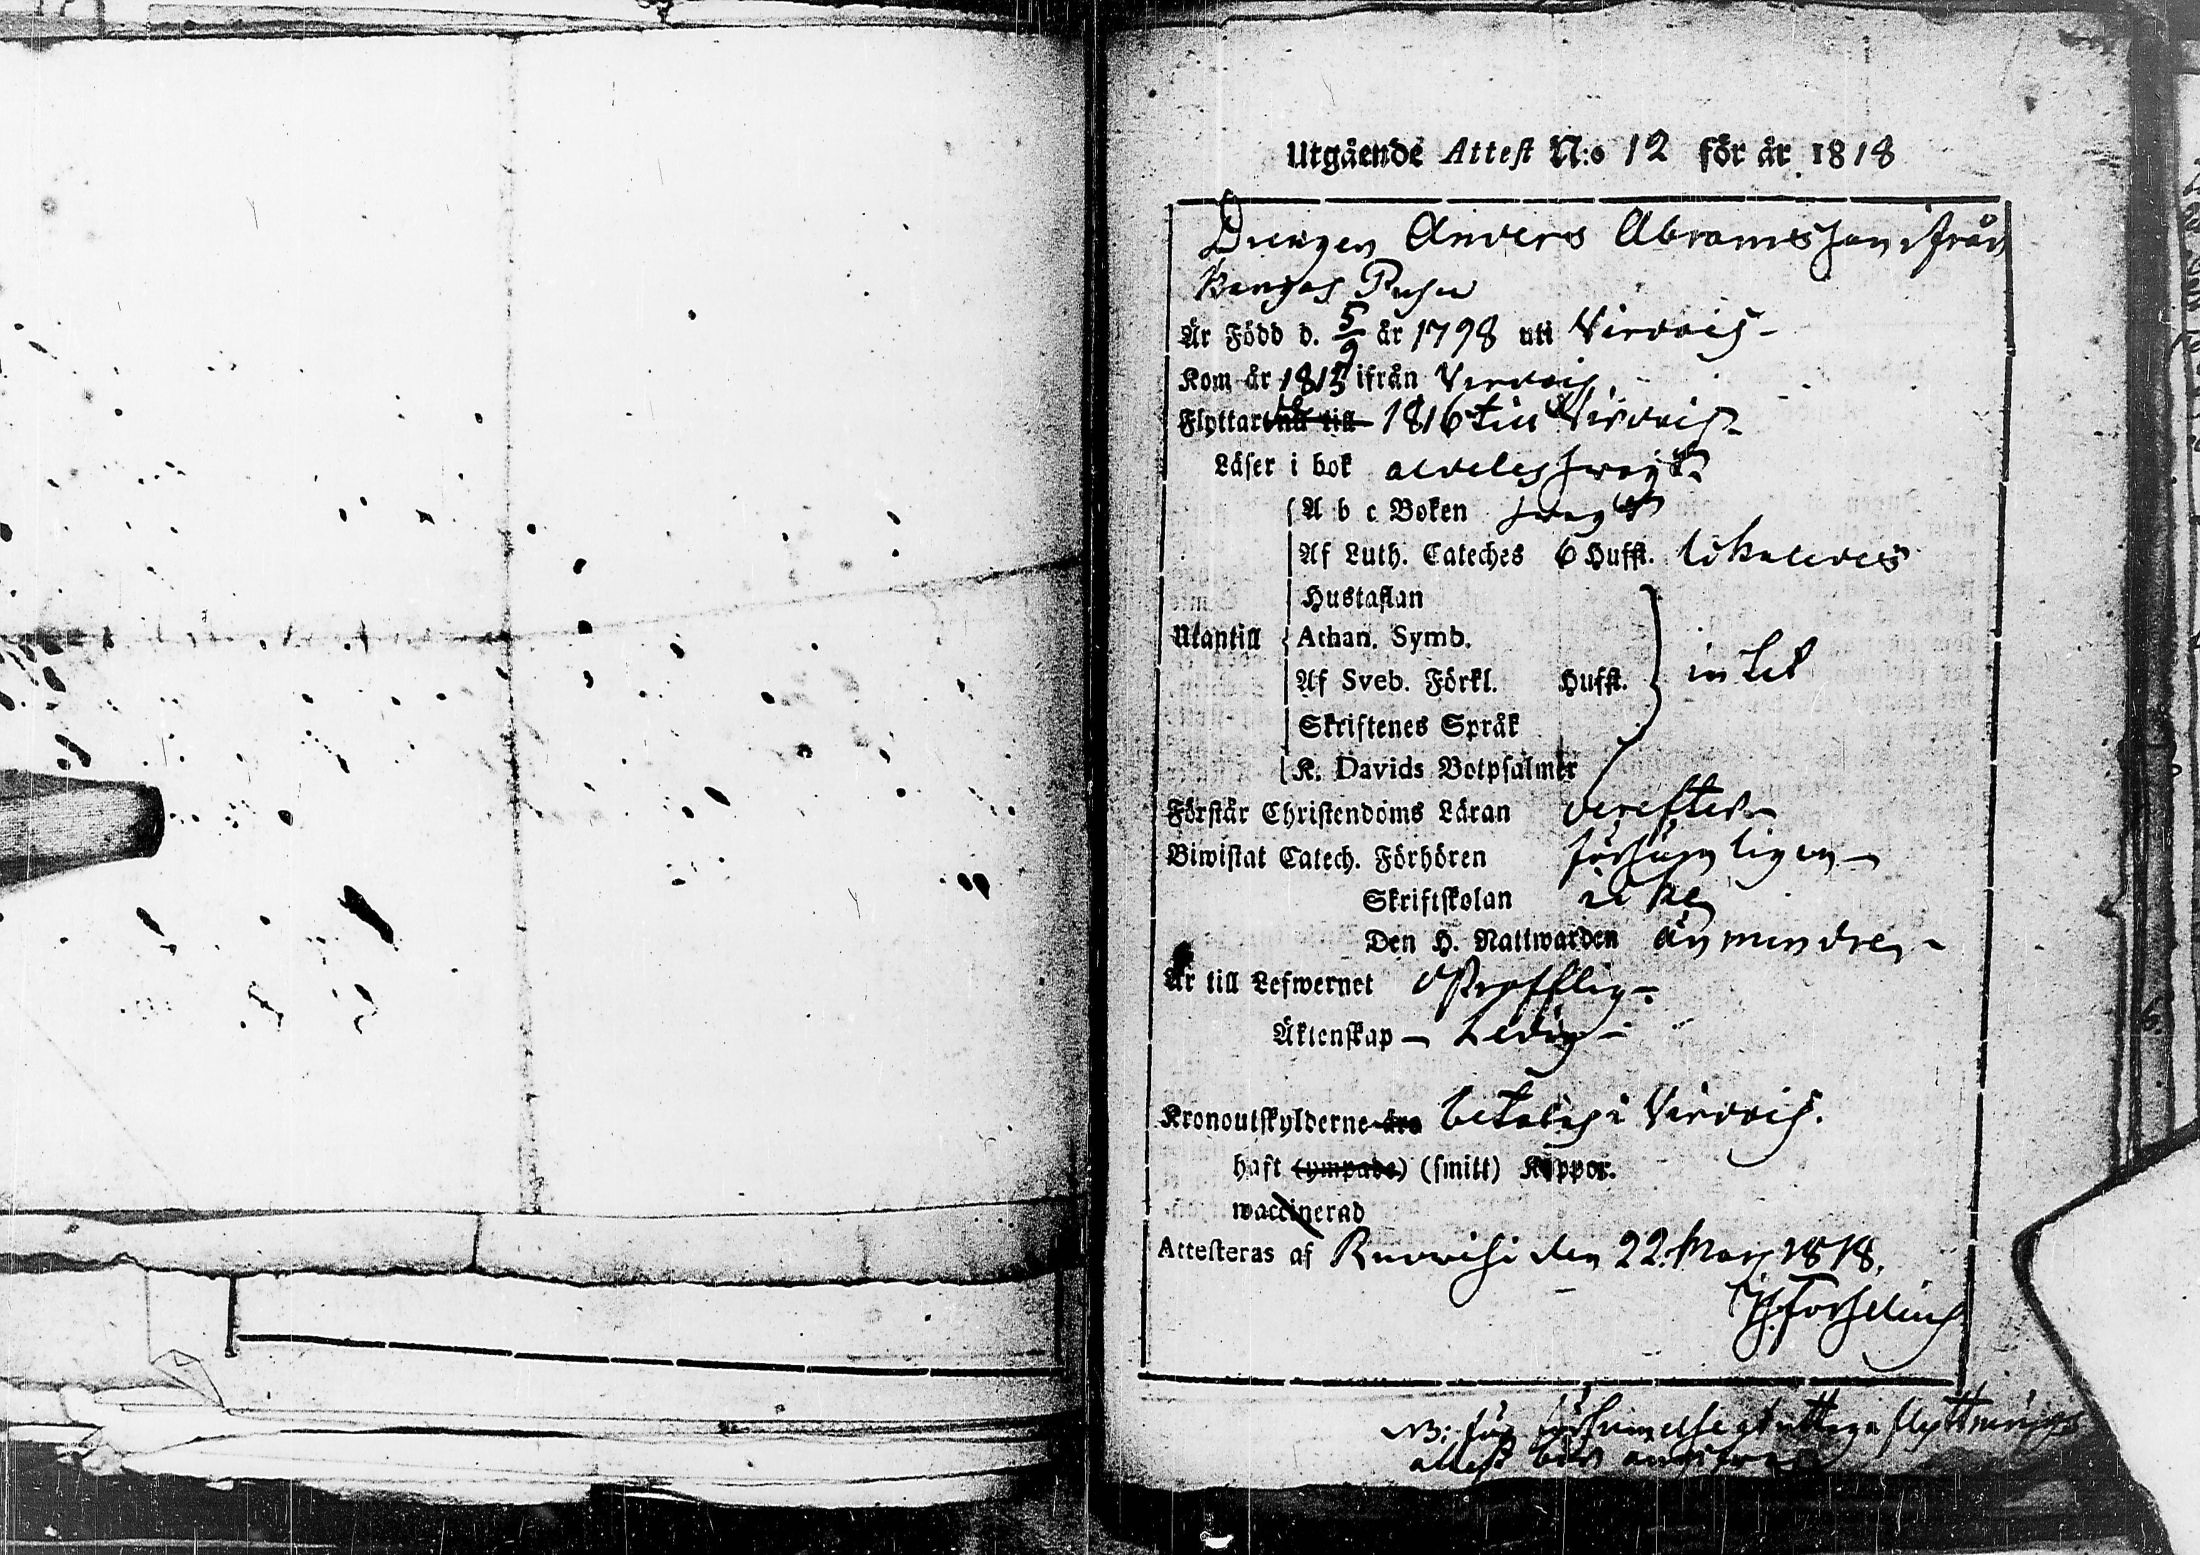 Utgående Attest N:o 12 för år 1818
Drengen Anders Abramsson ifrån
Kangas Pusu
Är Född d. 5/9 år 1798 uti Virdois
Kom år 1815 ifrån Virdois
Flyttar nu till 1816 till Virdois
Läser i bok aldeles swagt
A b c Boken swagt
Af Luth. Cateches 6 Hufst. likaledes
Hustaflan
Utantill Athan. Symb.
Af Sveb. Förkl. Hufst. intet
Skriftenes Språk
K. Davids Botpsalmer
Förstår Christendoms Läran derefter
Biwistat Catech. Förhören försumligen
Skriftskolan icke
Den H. Nattwarden än mindre
Är till Lefwernet ostrafflig
Äktenskap Ledig
Kronoutskylderne äro betalas i Virdois.
haft (ympade) (smitt) Koppor.
waccinerad
Attesteras af Ruovesi den 22 Mars 1818.
Forselius
NB: för försummelse att uttaga flyttnings
attest bör